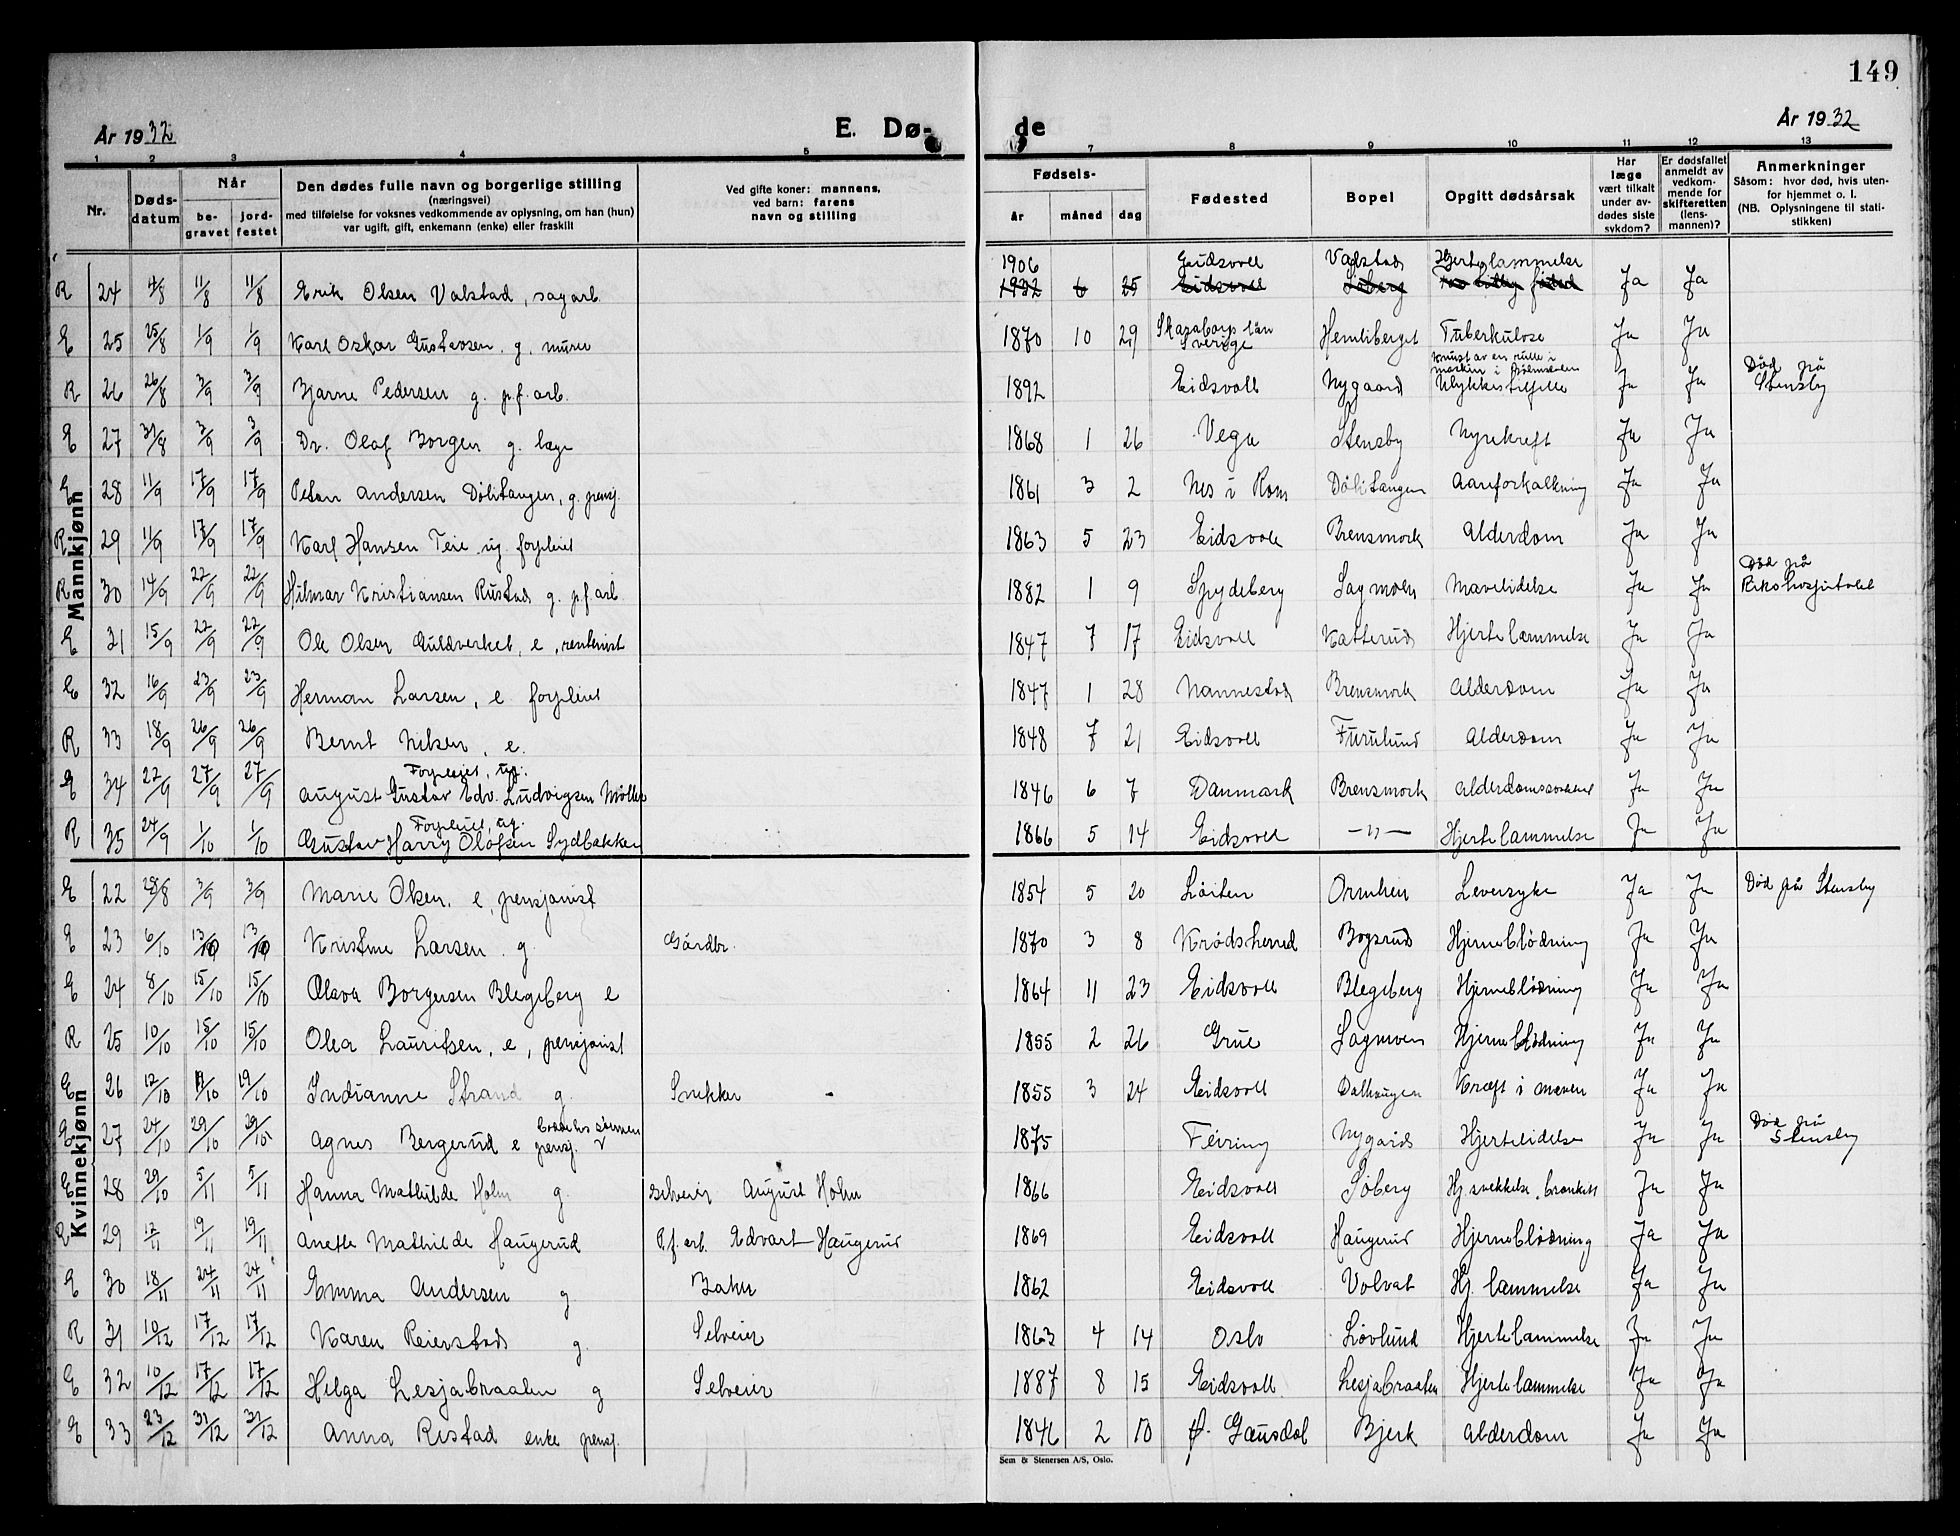 149
År 1932
E. Dø-
de
År 1932
1 2 3 4 5 7 8 9 10 11 12 13
Nr.
Døds-
datum
Når
be-
gravet
jord-
festet
Den dødes fulle navn og borgerlige stilling
(næringsvei)
med tilføielse for voksnes vedkommende av oplysning, om han (hun)
var ugift, gift, enkemann (enke) eller fraskilt
Ved gifte koner: mannens,
ved barn: farens
navn og stilling
Fødsels-
år måned dag
Fødested
Bopel
Opgitt dødsårsak
Har
læge
vært tilkalt
under av-
dødes siste
sykdom?
Er dødsfallet
anmeldt av
vedkom-
mende for
skifteretten
(lens-
mannen)?
Anmerkninger
Såsom: hvor død, hvis uten-
for hjemmet o. l.
(NB. Oplysningene til stati-
stikken)
Mannkjønn
1906 Eidsvoll Valstad Hjertelammelse
R 24 4/8 11/8 11/8 Erik Olsen Valstad, sagarb. 1932 6 25 Eidsvoll Søberg Ja Ja
E 25 25/8 1/9 1/9 Karl Oskar Gustavsen g. murer 1870 10 29 Skaraborgs län Sverige Hemliberget Tuberkulose Ja Ja
R 26 26/8 3/9 3/9 Bjarne Pedersen g. p.f. arb. 1892 Eidsvoll Nygaard Knust av en rulle i Ulykkestilfelle Ja Ja Død på Stensby
E 27 31/8 3/9 3/9 Dr. Olaf Borgen g. læge 1868 1 26 Vega Stensby Nyrekreft Ja Ja
E 28 11/9 17/9 17/9 Petter Andersen Dölitangen, g. pensj. 1861 3 2 Nes i Rom Dölitangen Aareforkalkning Ja Ja
R 29 11/9 17/9 17/9 Karl Hansen Teie ug. forpleiet 1863 5 23 Eidsvoll Brensmork Alderdom Ja Ja
R 30 14/9 22/9 22/9 Hilmar Kristiansen Rustad g. p.f arb. 1882 1 9 Spydeberg Sagmoen Mavelidelse Ja Ja Død på Rikshospitalet
E 31 15/9 22/9 22/9 Ole Olsen Guldverket, e, rentenist 1847 7 17 Eidsvoll Katterud Hjertelammelse Ja Ja
E 32 16/9 23/9 23/9 Herman Larsen, e. forpleiet 1847 1 28 Nannestad Brensmork Alderdom Ja Ja
R 33 18/9 26/9 26/9 Bernt Nilsen, e. 1848 7 21 Eidsvoll Furulund Alderdom Ja Ja
E 34 22/9 27/9 27/9 Forpleiet, ug. August Gustav Edv. Ludvigsen Møller 1846 6 7 Danmark Brensmork Alderdomssvakhet Ja Ja
R 35 24/9 1/10 1/10 Forpleiet, ug. Gustav Harry Olofsen Sydbakken 1866 5 14 Eidsvoll —"— Hjertelammelse Ja Ja
Kvinnekjønn
E 22 28/8 3/9 3/9 Marie Olsen, e, pensjonist 1854 5 20 Löiten Ormlien Leversyke Ja Ja Død på Stensby
E 23 6/10 13/10 13/10 Kristine Larsen g. Gårdbr. 1870 3 8 Krødsherred Bogsrud Hjerneblödning Ja Ja
E 24 8/10 15/10 15/10 Olava Borgersen Blegsberg e 1864 11 23 Eidsvoll Blegsberg Hjerneblödning Ja Ja
R 25 10/10 15/10 15/10 Olea Lauritsen, e, pensjonist 1855 2 26 Grue Sagmoen Hjerneblödning Ja Ja
E 26 12/10 19/10 19/10 Indianne Strand g. Snekker 1855 3 24 Eidsvoll Dalhaugen Kræft i maven Ja Ja
E 27 24/10 29/10 29/10 Agnes Bergerud e pensj. 1875 Feiring Nygaard Hjertelidelse Ja Ja Død på Stensby
E 28 29/10 5/11 5/11 Hanna Mathilde Holm g. selveier August Holm 1866 Eidsvoll Söberg Hj svekkelse, bronkitt Ja Ja
R 29 12/11 19/11 19/11 Anette Mathilde Haugerud P.f. arb. Edvart Haugerud 1869 Eidsvoll Haugerud Hjerneblödning Ja Ja
E 30 18/11 24/11 24/11 Emma Andersen g. Baker 1862 Eidsvoll Volvat Hj. lammelse Ja Ja
R 31 10/12 17/12 17/12 Karen Reierstad g. Selveier 1863 4 14 Oslo Lövlund Hjertelammelse Ja Ja
E 32 10/12 17/12 17/12 Helga Lesjabraaten g Selveier 1887 8 15 Eidsvoll Lesjabraaten Hjertelammelse Ja Ja
E 33 23/12 31/12 31/12 Anna Ristad enke pensj. 1846 2 10 Ø. Gausdal Bjerk Alderdom Ja Ja
Sem & Stenersen A/S, Oslo.